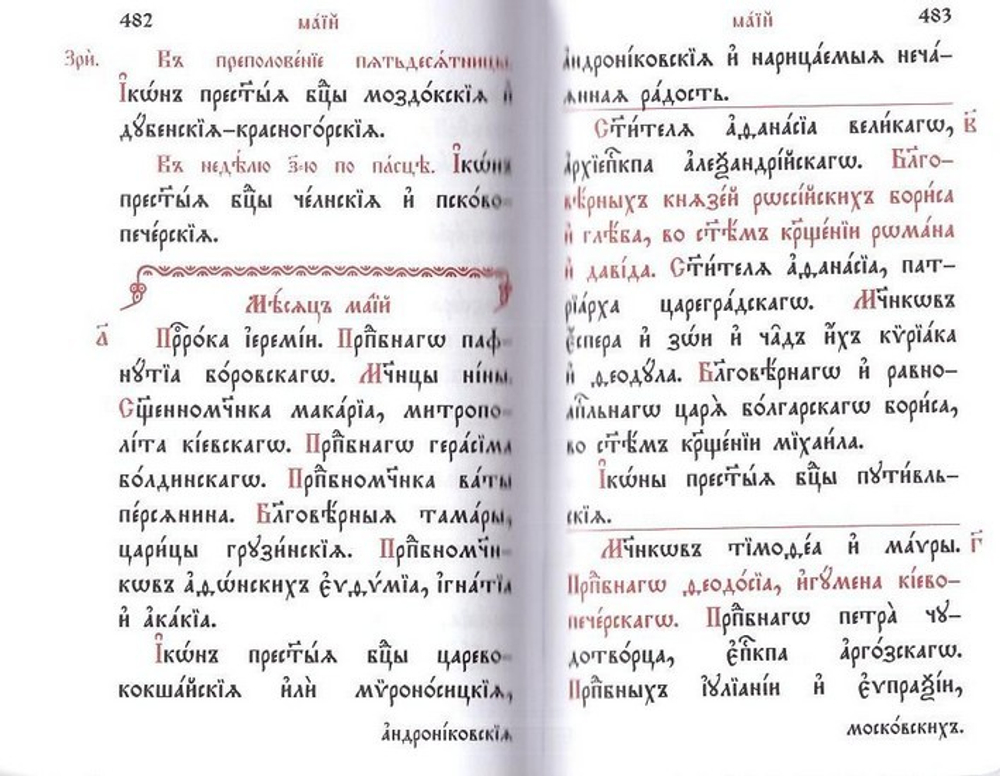 482 ма́їй
Зрѝ. Въ преполове́нїе пѧтьдесѧ́тницы
І҆кѡ́нъ прест҃ы́ѧ бц҃ы моздо́кскїѧ и҆
дꙋ́бенскїѧ-красного́рскїѧ.
Въ недѣ́лю г҃-ю по па́сцѣ. І҆кѡ́нъ
прест҃ы́ѧ бц҃ы че́лнскїѧ и҆ пско́во-
пече́рскїѧ.
Мѣ́сѧцъ ма́їй
а҃ Прⷪ҇ро́ка і҆еремі́и. Прпⷣбнагѡ паф-
нꙋ́тїа бо́ровскагѡ. Мч҃нцы ні́ны.
Сщ҃енномч҃нка мака́рїа, митропо-
лі́та кі́евскагѡ. Прпⷣбнагѡ гера́сїма
бо́лдинскагѡ. Прпⷣбномч҃нка ва́ты
пе́рсѧнина. Бл҃говѣ́рныѧ тама́ры,
цари́цы грꙋзи́нскїѧ. Прпⷣбномч҃ни-
кѡвъ а҆ѳѡ́нскихъ є҆ѵѳѵ́мїа, і҆гна́тїа
и҆ а҆ка́кїа.
І҆кѡ́нъ прест҃ы́ѧ бц҃ы царево-
кокша́йскїѧ и҆лѝ мѵроно́сицкїѧ,
а҆ндроні́ковскїѧ
ма́їй 483
а҆ндроні́ковскїѧ и҆ нарица́емыѧ неча́-
ѧннаѧ ра́дость.
Ст҃и́телѧ а҆ѳана́сїа вели́кагѡ, в҃
а҆рхїепⷭ҇кпа а҆леѯандрі́йскагѡ. Бл҃го-
вѣ́рныхъ кнѧзе́й рѡссі́йскихъ бори́са
и҆ глѣ́ба, во ст҃ѣ́мъ крⷭ҇ще́нїи рѡма́на
и҆ даві́да. Ст҃и́телѧ а҆ѳана́сїа, пат-
рїа́рха цареgра́дскагѡ. Мч҃нкѡвъ
є҆спера и҆ зѡ́и и҆ ча̑дъ и҆́хъ кѵрїа́ка
и҆ ѳеодꙋ́ла. Бл҃говѣ́рнагѡ и҆ равно-
а҆пⷭ҇льнагѡ царѧ̀ бо́лгарскагѡ бори́са,
во ст҃ѣ́мъ крⷭ҇ще́нїи мїхаи́ла.
І҆кѡ́ны прест҃ы́ѧ бц҃ы пꙋти́вль-
скїѧ.
Мч҃нкѡвъ тїмоѳе́а и҆ ма́ѵры. г҃
Прпⷣбнагѡ ѳеодо́сїа, и҆гꙋ́мена кі́ево-
пече́рскагѡ. Прпⷣбнагѡ петра̀ чꙋ-
дотво́рца, є҆пⷭ҇кпа а҆рго́зскагѡ.
Прпⷣбныхъ і҆ꙋлїані́и и҆ є҆ѵпраѯі́и,
моско́вскихъ.